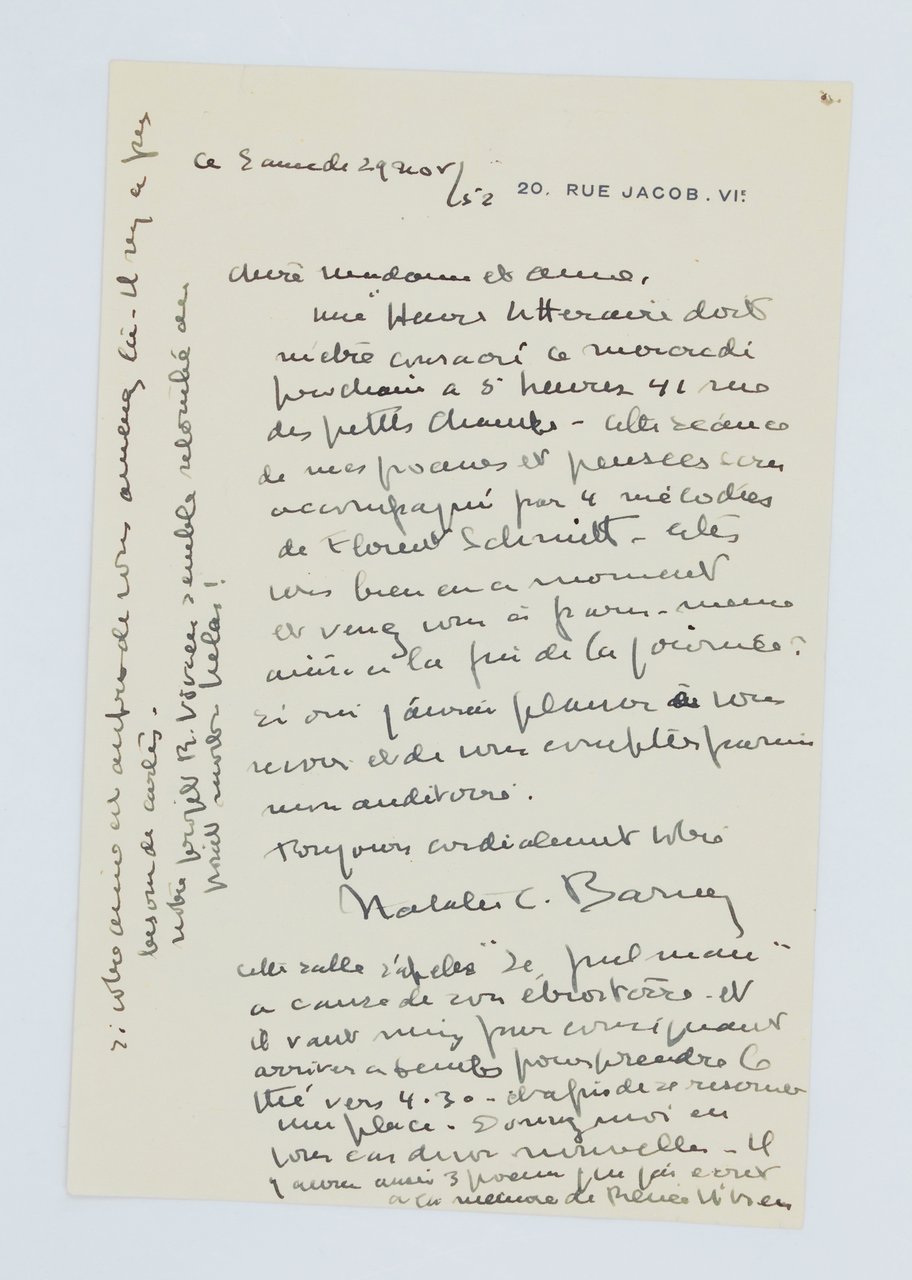 Ce Samedi 29 nov/52
20, RUE JACOB. VIE
chère madame et amie,
une "Heure littéraire doit
m'être consacré ce mercredi
prochain a 5 heures 41 rue
des petits Champs - cette séance
de mes poèmes et pensées sera
accompagné par 4 mélodies
de Florent Schmitt -
vous bien en ce moment
et venez vous à paris - même
ainsi à la fin de la journée?
si oui j'aurai plaisir à vous
revoir et de vous compter parmi
mon auditoire.
Toujours cordialement votre
Natalie C. Barney
cette salle s'apelle "Le pulman"
a cause de son étroitesse - et
il vaut mieux par conséquent
arriver a temps pour prendre le
thé vers 4.30 - et afin de se reserver
une place. Donnez moi en
tous cas de vos nouvelles - Il
y aura aussi 3 poèmes que j'ai écrit
a la mémoire de Renée Vivien
si votre amie est auprès de vous amenez la - Il n'y a pas
besoin de cartes.
notre projet R. Vivien semble retombé au
point mort hélas!